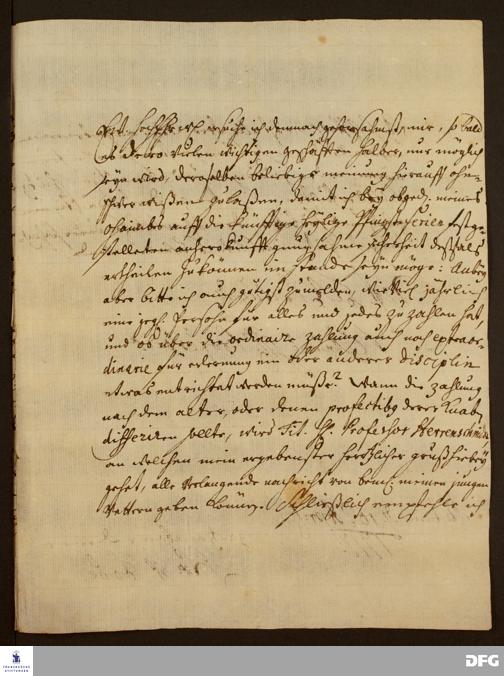 Ew. HochEhrw. ersuche ich demnach gehorsahmst, mir, so bald
es dero vielen wichtigen geschäfften halber, nur möglich
seyn wird, deroselben beliebige meinung hierauff ohn-
schwer wißen zu laßen, damit ich bey obged. meines
ohaimbs auff die künfftige heylige Pfingstferien festge-
stelleten anherokunfft gnugsahme sicherheit deßfals
ertheilen zu können im stande seyn möge: Anbey
aber bitte ich auch gütigst zu melden, wieviel jährlich
eine jegl. Persohn für alles und jedes zu zahlen hat,
und ob über die ordinaire zahlung auch noch extraor-
dinarie für erlernung ein oder anderer disciplin
etwas entrichtet werden müße? Wann die zahlung
nach dem alter, oder denen profectibg derer Knaben
differiren sollte, wird Tit. H. Professor Herrenschmidt
an welchen mein ergebenster herzlicher gruß hiebey
gehet, alle verlangende nachricht von meinen jungen
Vettern geben können. Schließlich empfehle ich
FRANCKESCHE
STIFTUNGEN
DFG